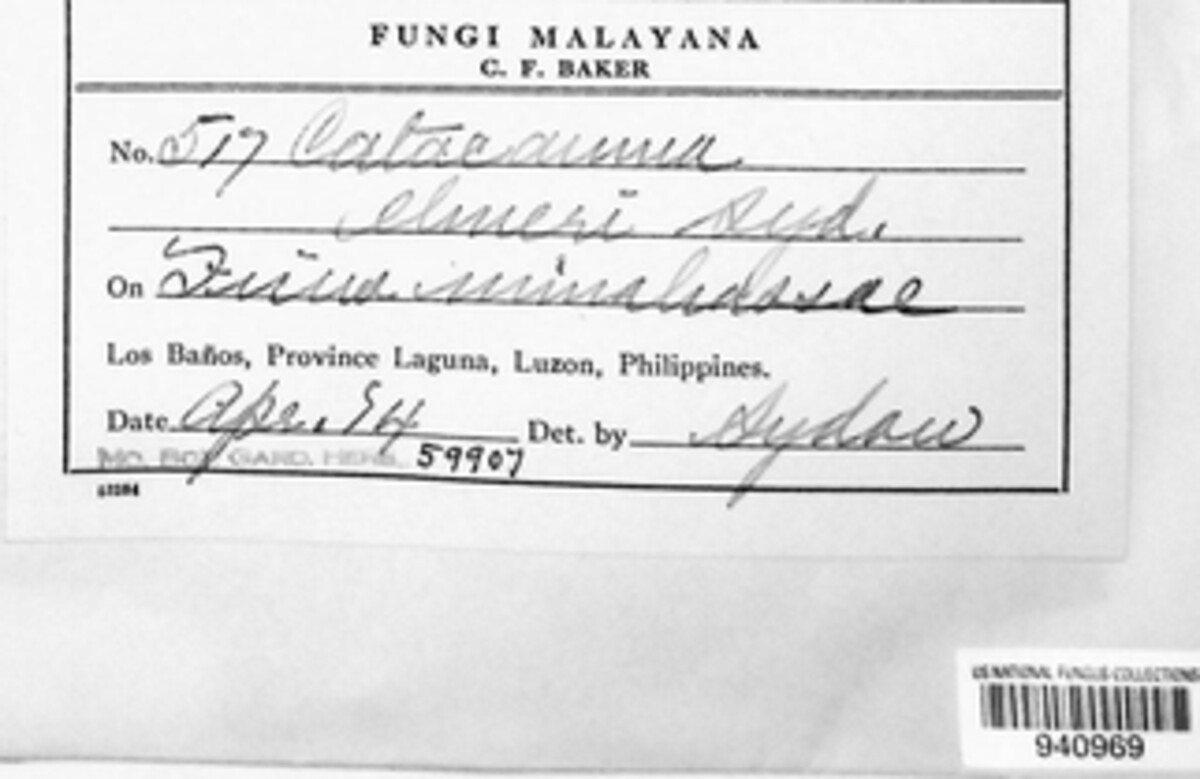 FUNGI MALAYANA
C. F. BAKER
No. 517 Catacauma
elmeri Syd.
On Ficus minahassae
Los Baños, Province Laguna, Luzon, Philippines.
Date Apr. 14 Det. by Sydow
MO. BOT. GARD. HERB. 59907
US NATIONAL FUNGUS COLLECTIONS
940969